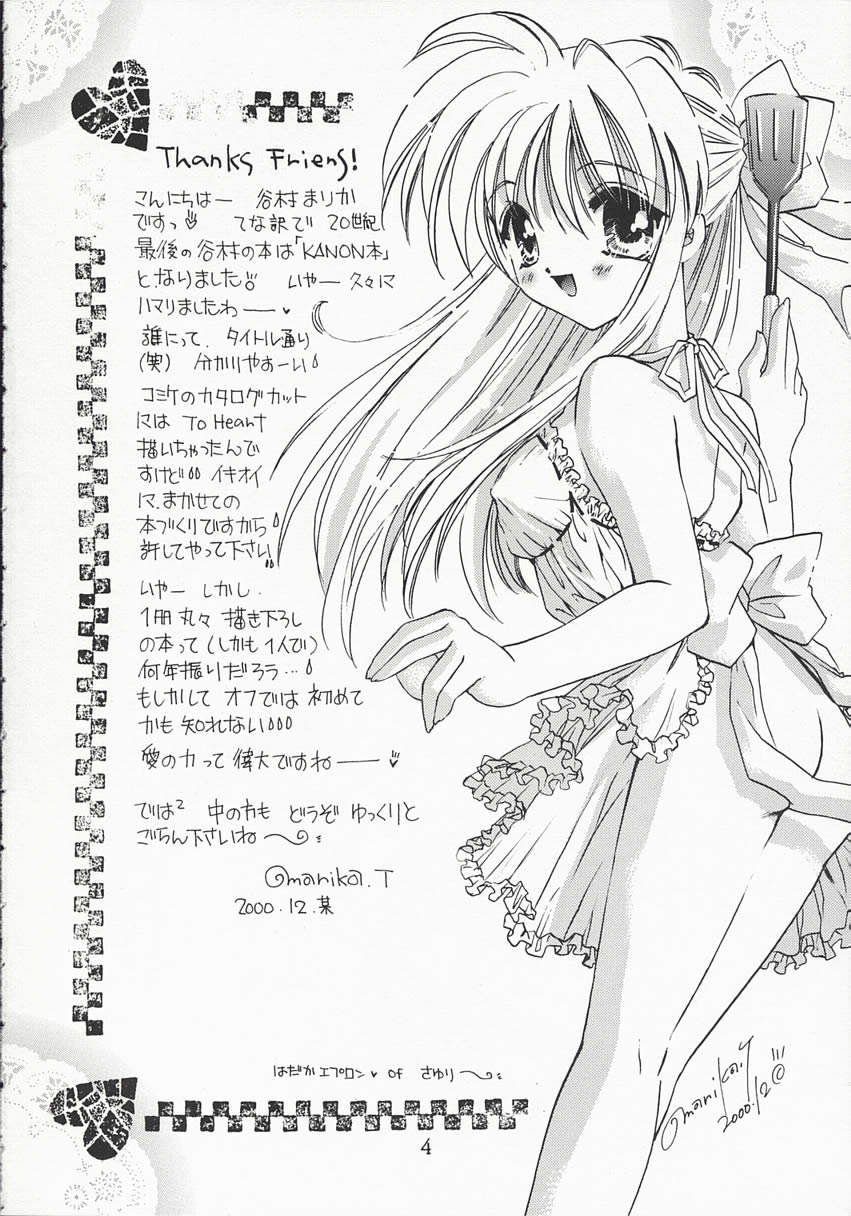 Thanks Friens!
こんにちはー 谷村まりか
ですっ てな訳で 20世紀
最後の谷村の本は「KANON本」
となりました!! いやー 久々に
ハマりましたわー
誰にって、タイトル通り
(笑) 分かりやすーい
コミケのカタログカット
には To Heart
描いちゃったんで
すけど イキオイ
に、まかせての
本づくりですから
許してやって下さい
いやー しかし、
1冊丸々 描き下ろし
の本って(しかも1人で)
何年振りだろう…
もしかして オフでは 初めて
かも 知れない
愛の力って 偉大ですねー
では² 中の方も どうぞ ゆっくりと
ごらん下さいね〜
marika.T
2000.12.某
はだかエプロン♥ of さゆり〜
marika.T
2000.12 ©
4